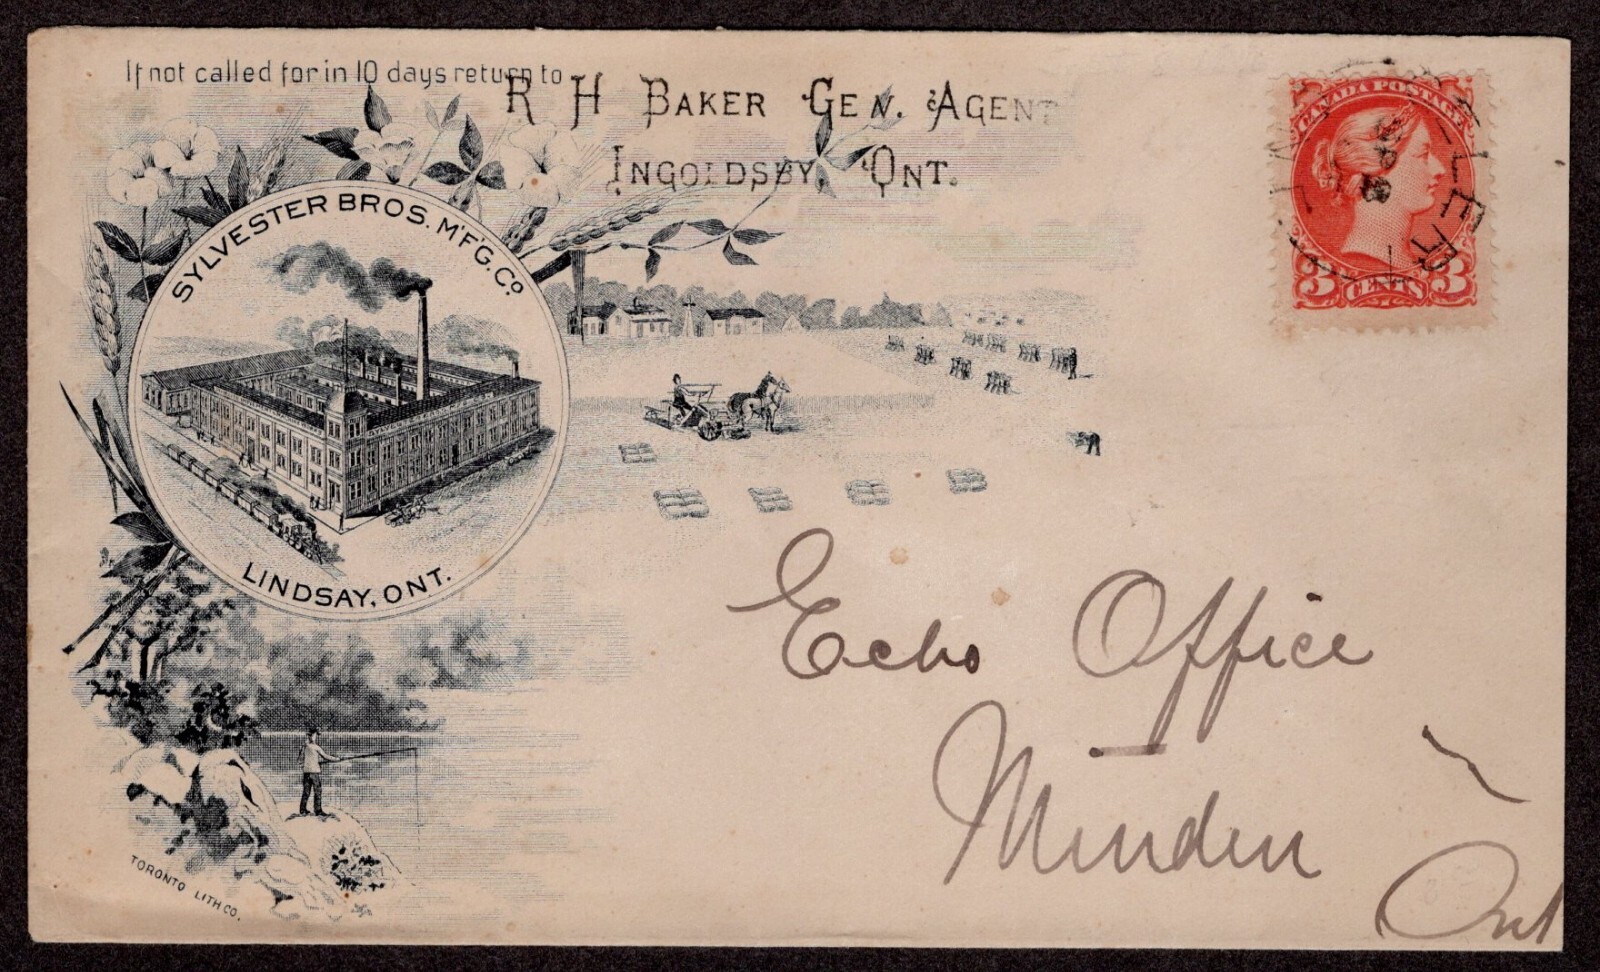 If not called for in 10 days return to
R H BAKER GEN. AGENT
INGOLDSBY, ONT.
SYLVESTER BROS. M'F'G. Co
LINDSAY, ONT.
CANADA POSTAGE
3 CENTS 3
Echo Office
Minden
Ont
TORONTO LITH CO.